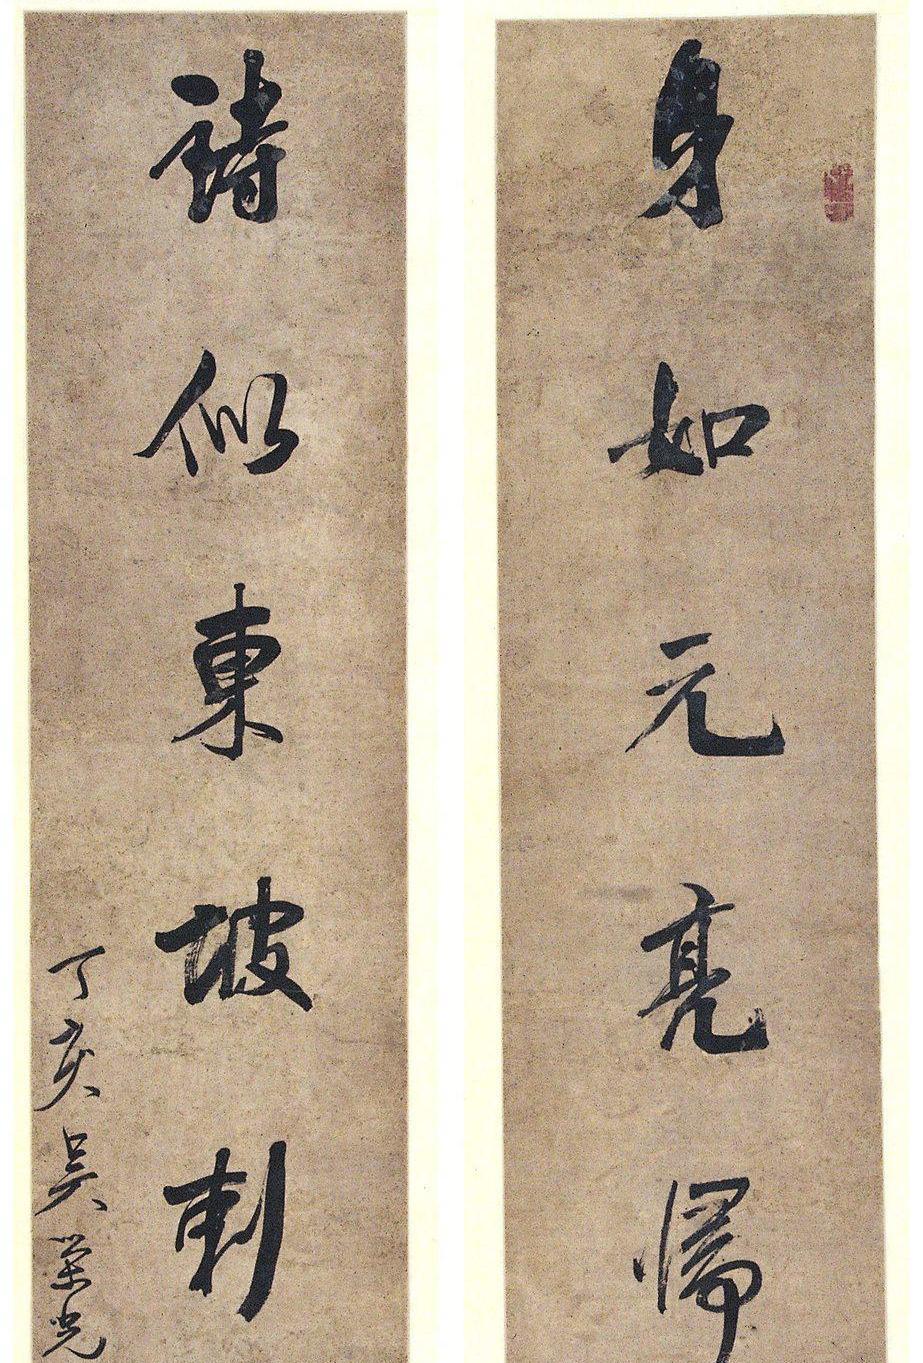 身如元亮歸
詩似東坡刺
丁亥吳榮光